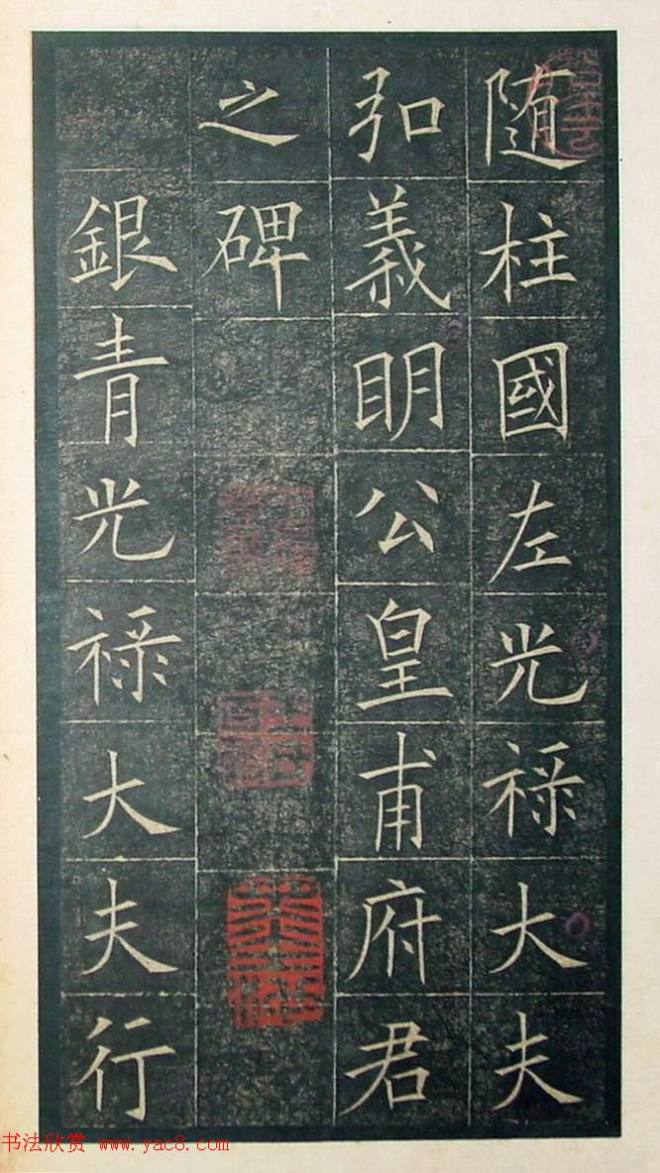 随柱國左光禄大夫
弘義明公皇甫府君
之碑
銀青光禄大夫行
书法欣赏 www.yac8.com